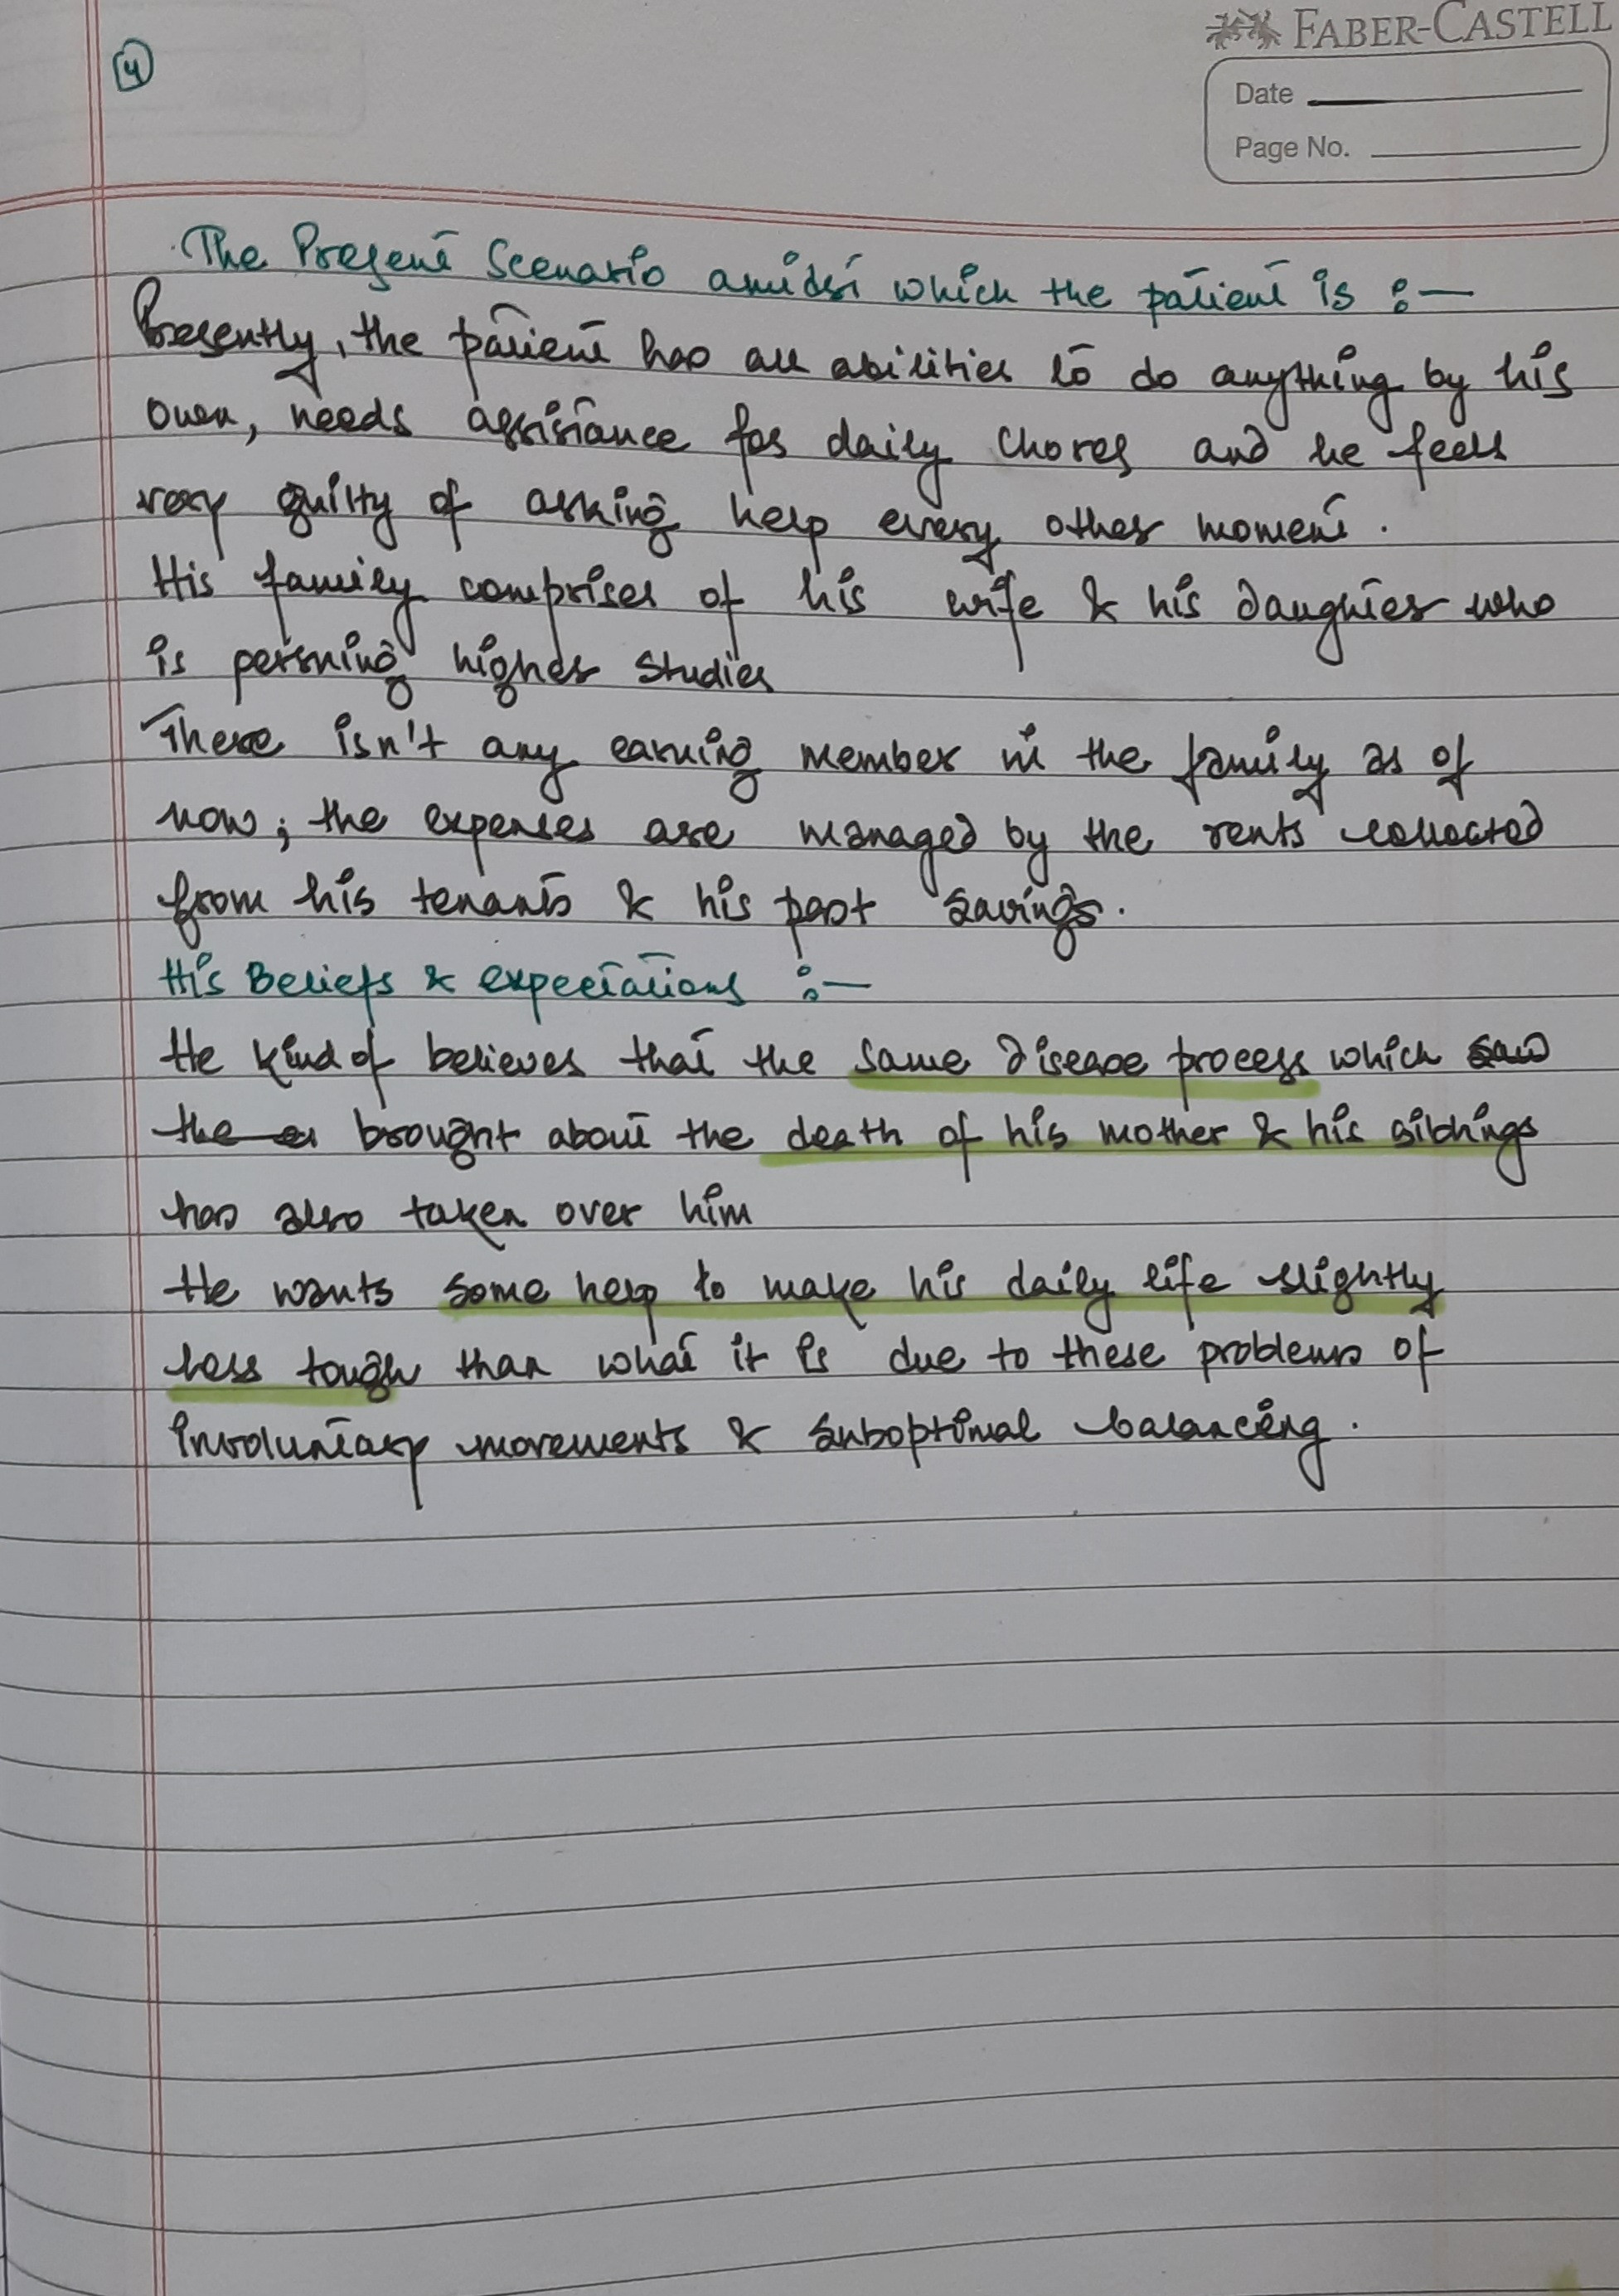 4
FABER-CASTELL
Date
Page No.
The Present Scenario amidst which the patient is :-
Presently, the patient has all abilities to do anything by his
own, needs assistance for daily chores and he feels
very guilty of asking help every other moment.
His family comprises of his wife & his daughter who
is persning higher studies
There isn't any earning member in the family as of
now; the expenses are managed by the rents collected
from his tenants & his past savings.
His Beliefs & expectations :-
He kind of believes that the same disease process which saw
the er brought about the death of his mother & his siblings
has also taken over him
He wants some help to make his daily life slightly
less tough than what it is due to these problems of
involuntary movements & suboptimal balancing.